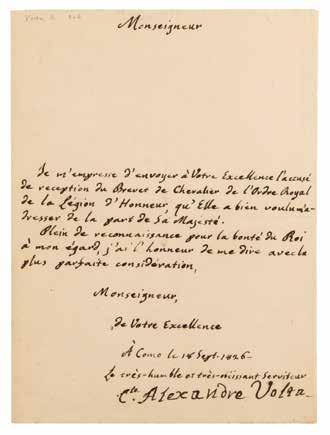 Monseigneur
Je m'empresse d'envoyer à Votre Excellence l'accusé
de reception du Brevet de Chevalier de l'Ordre Royal
de la Légion d'Honneur, qu'Elle a bien voulu m'a-
dresser de la part de Sa Majesté.
Plein de reconnaissance pour la bonté du Roi
à mon égard, j'ai l'honneur de me dire avec la
plus parfaite considération,
Monseigneur,
de Votre Excellence
À Como le 18 Sept. 1826
Le très-humble et très-obéissant Serviteur
C.te Alexandre Volta